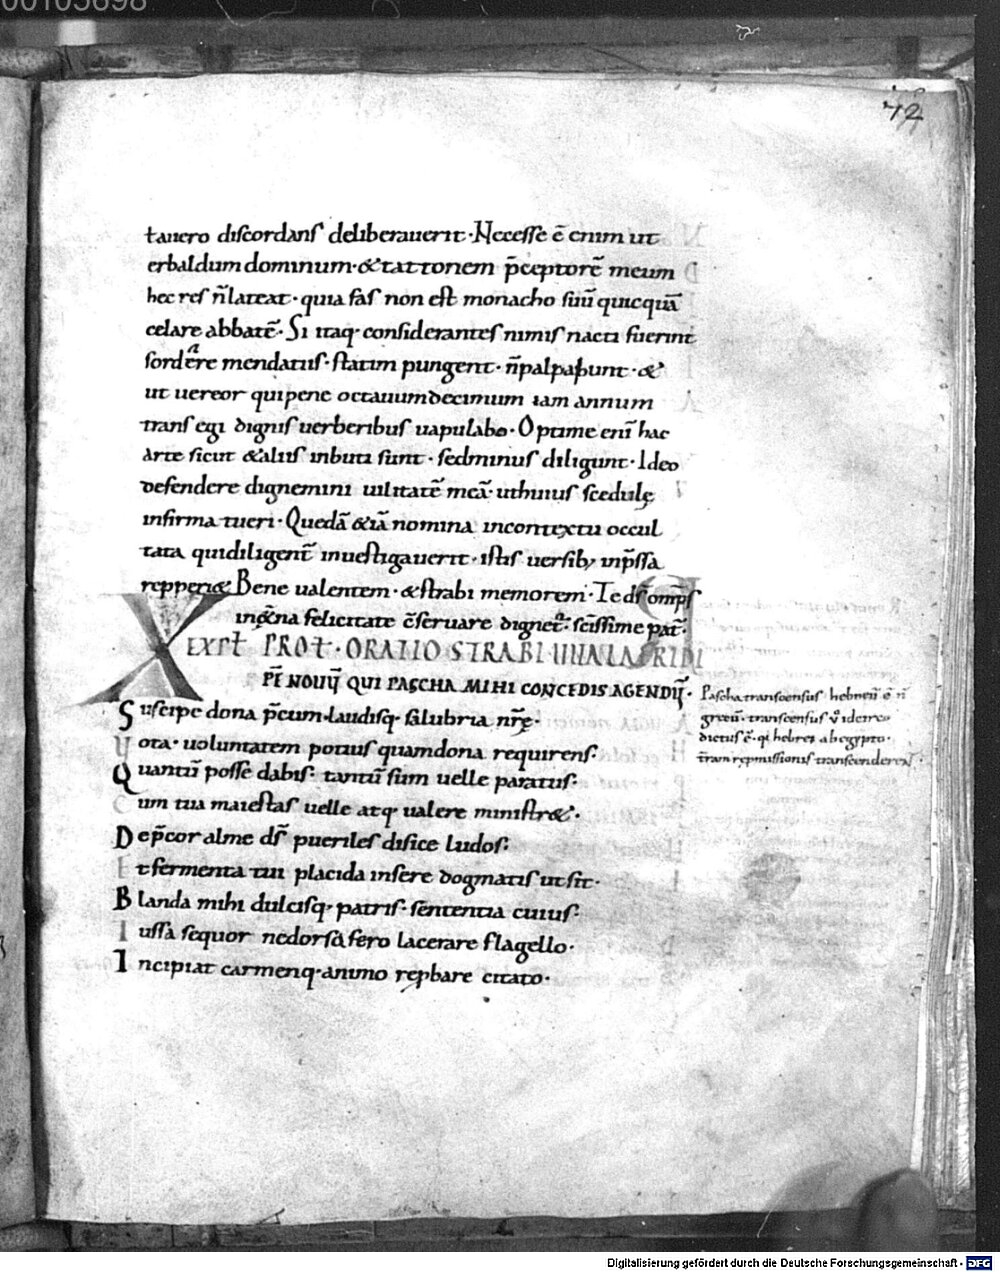 00105698
72
tauero discordans deliberauerit · Necesse ē enim ut
erbaldum dominum · & tattonem p̄ceptorē meum
hec res n̄ lateat · quia fas non est monacho suū quicquā
celare abbatē · Si itaq· considerantes nimis nacti fuerint
sordere mendatiis · statim pungent · n̄ palpabunt · &
ut uereor qui pene octauumdecimum iam annum
transegi dignis uerberibus uapulabo · Optime enī hac
arte sicut & aliis inbuti sunt · sed minus diligunt · Ideo
defendere dignemini uilitatē meā · ut huius scedulę
infirma tueri · Quedā & iā nomina in contextu occul
tata qui diligent̄ inuestigauerit · istis uersib; inp̄ssa
repperi& Bene ualentem · & strabi memorem · Te ds̄ omp̄s
in &̄na felicitate c̄seruare dignet̄ · sc̄issime pat̄ ·
EXPL̄ PROL̄ · ORATIO STRABI UUALAFRIDI
PĒ NOUŪ QUI PASCHA MIHI CONCEDIS AGENDŪ ·
Pascha transcensus hebreū ē n̄
grecū · transcensus ū idcirco
dictus ē · qi hebrei ab egypto ·
Suscipe dona p̄cum laudisq· salubria nr̄ę ·
Uota · uoluntatem potius quam dona requirens ·
Quantū posse dabis · tantū sim uelle paratus ·
Cum tua maiestas uelle atq· ualere ministr& ·
Dep̄cor alme ds̄ pueriles disice ludos ·
Et fermenta tui placida insere dogmatis ut sit ·
Blanda mihi dulcisq· patris · sententia cuius ·
Iussa sequor ne dorsa fero lacerare flagello ·
Incipiat carmenq· animo rep̄bare citato ·
Digitalisierung gefördert durch die Deutsche Forschungsgemeinschaft - DFG